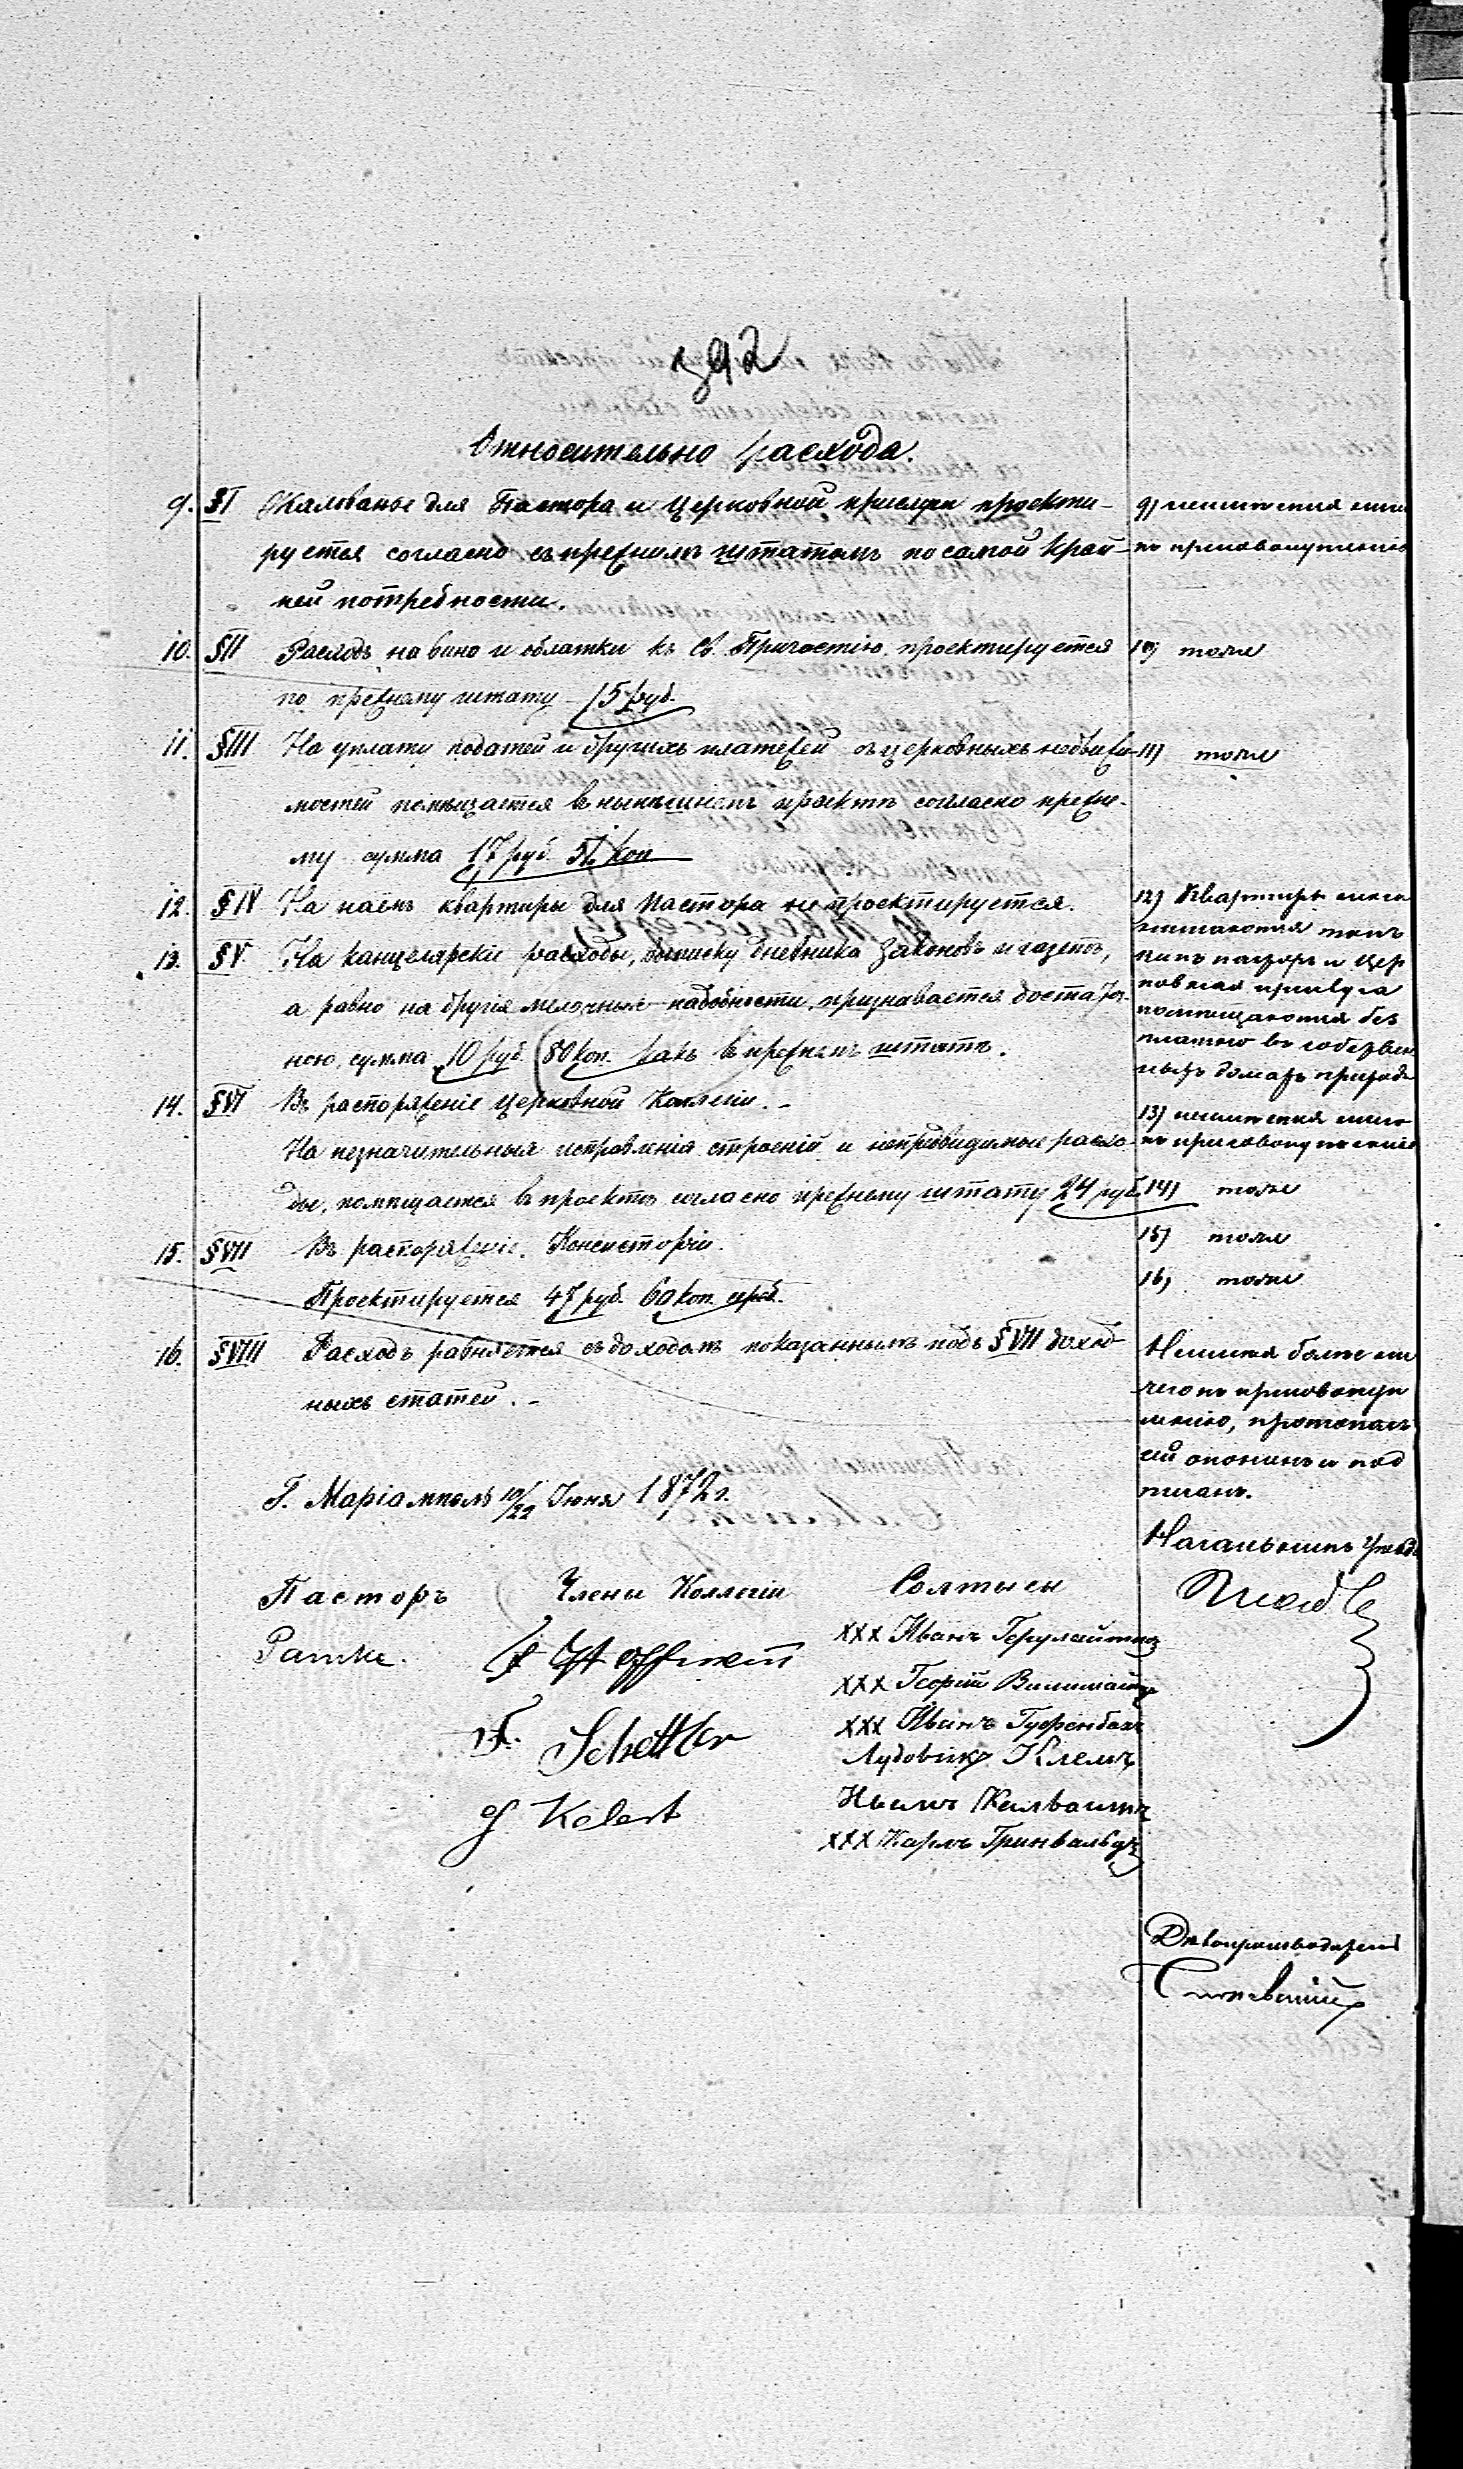 392
Относительно расхода.
9. §I Жалованье для Пастора и церковной прислуги проекти-
руется согласно съ прежнимъ штатомъ по самой край-
ней потребности.
10. §II Расходъ на вино и облатки къ Св. Причастію проектируется
по прежнему штату 15 руб.
11. §III На уплату податей и другихъ платежей съ церковныхъ недвижи-
мостей помѣщается в нынѣшнемъ проектѣ согласно прежне-
му сумма 17 руб. коп
12. §IV На наёмъ квартиры для Пастора не проектируется.
13. §V На канцелярскіе расходы, выписку дневника законовъ и газетъ,
а равно на другія мелочные надобности, признавается достаточ-
ною, сумма 10 руб. 80 коп. какъ в прежнемъ штатѣ.
14. §VI Въ распоряженіе церковной Коллегіи.-
На незначительныя исправленія строеній и непредвидимые расхо-
ды, помѣщается в проектѣ согласно прежнему штату 24 руб.
15. §VII Въ распоряженіе Консисторіи.
Проектируется 47 руб. 60 коп. сереб.
16. §VIII Расходъ равняется съ доходомъ показаннымъ подъ §VII доход-
ныхъ статей.-
Г. Маріамполь 10/22 Іюня 1872 г.
Пасторъ Члены Коллегіи Солтысы
ХХХ Иванъ
Hoffmann
ХХХ Георгій
Schettler
ХХХ Иванъ
Лудовикъ Клемъ
Kelert
ХХХ Карлъ Гринвальдъ
9)
10) тоже
11) тоже
12) Квартиры
какъ пасторъ и цер
ковная прислуга
помѣщаются без
платно въ собствен
ныхъ домахъ прихода
13)
14) тоже
15) тоже
16) тоже
Неимѣя болѣе ни
чего къ присовокуп
ленію, протоколъ
сей оконченъ и под
писанъ.
Начальникъ уѣзда
Дѣлопроизводитель